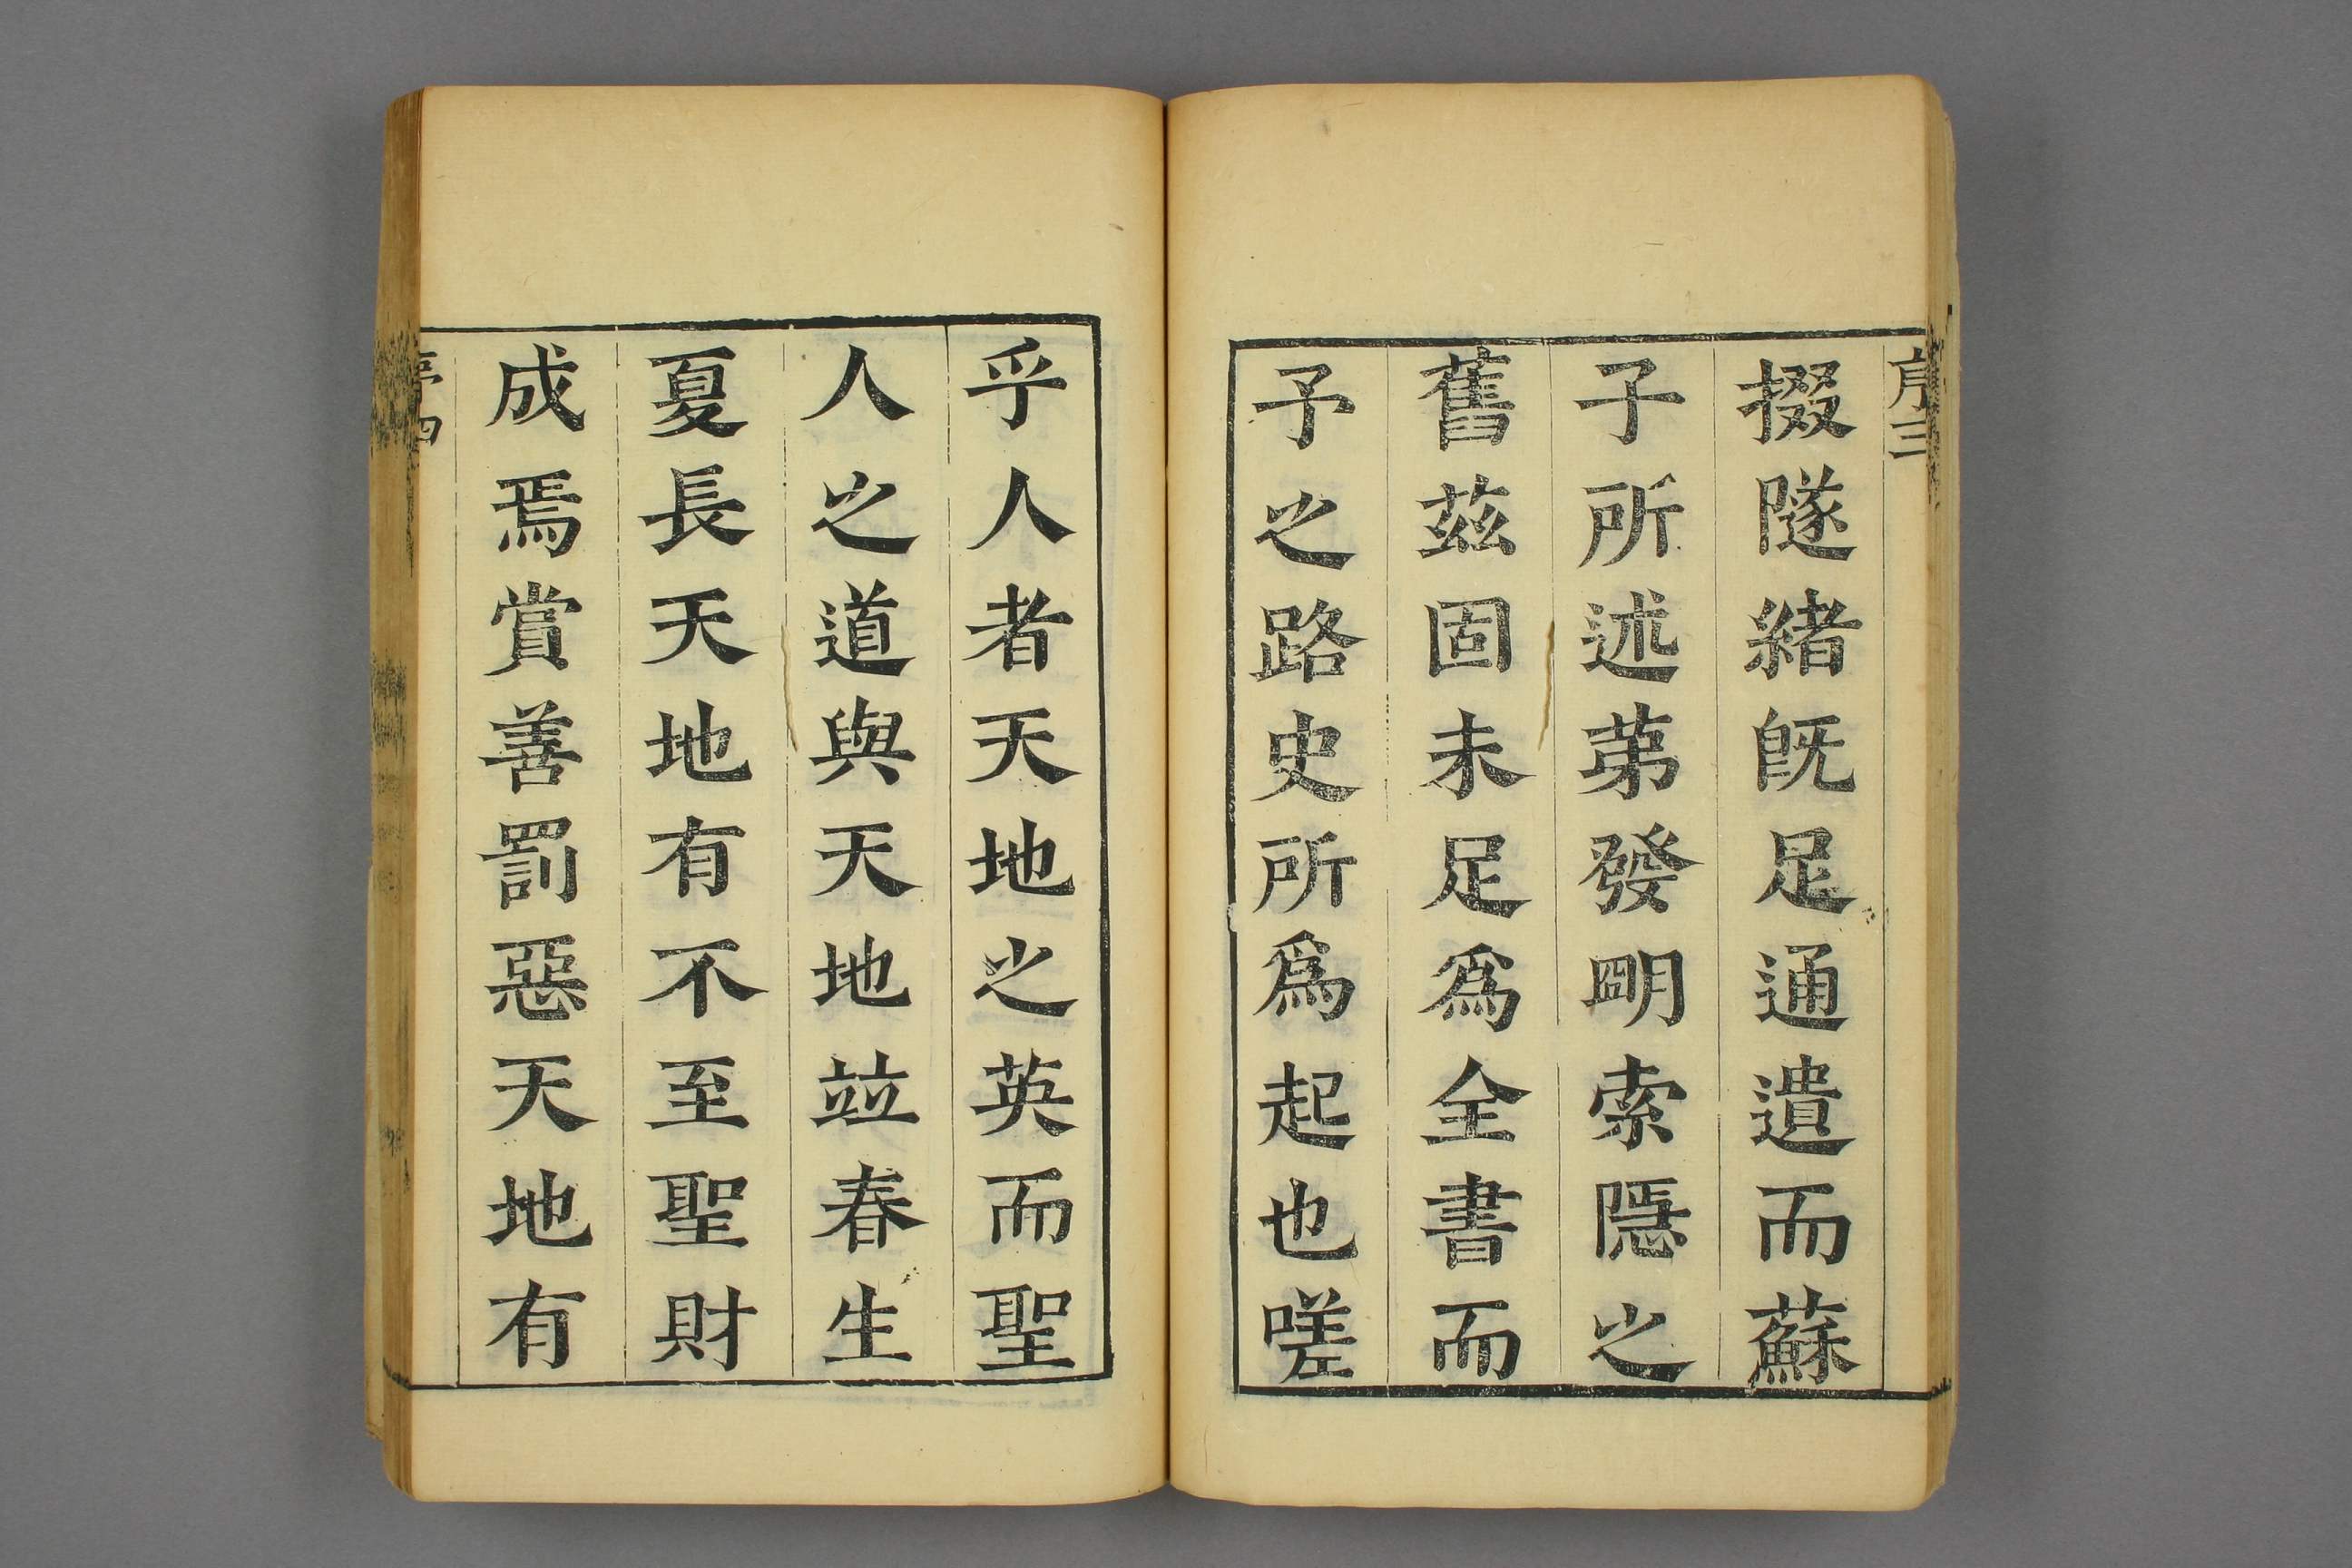 序三
掇隧緒旣足通遺而蘇
子所述苐發明索隱之
舊茲固未足爲全書而
予之路史所爲起也嗟
乎人者天地之英而聖
人之道與天地竝春生
夏長天地有不至聖財
成焉賞善罰惡天地有
序四